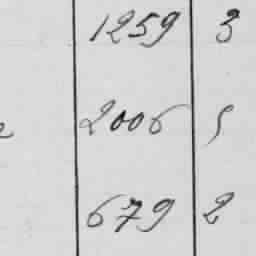 1259 3
2006 5
679 2